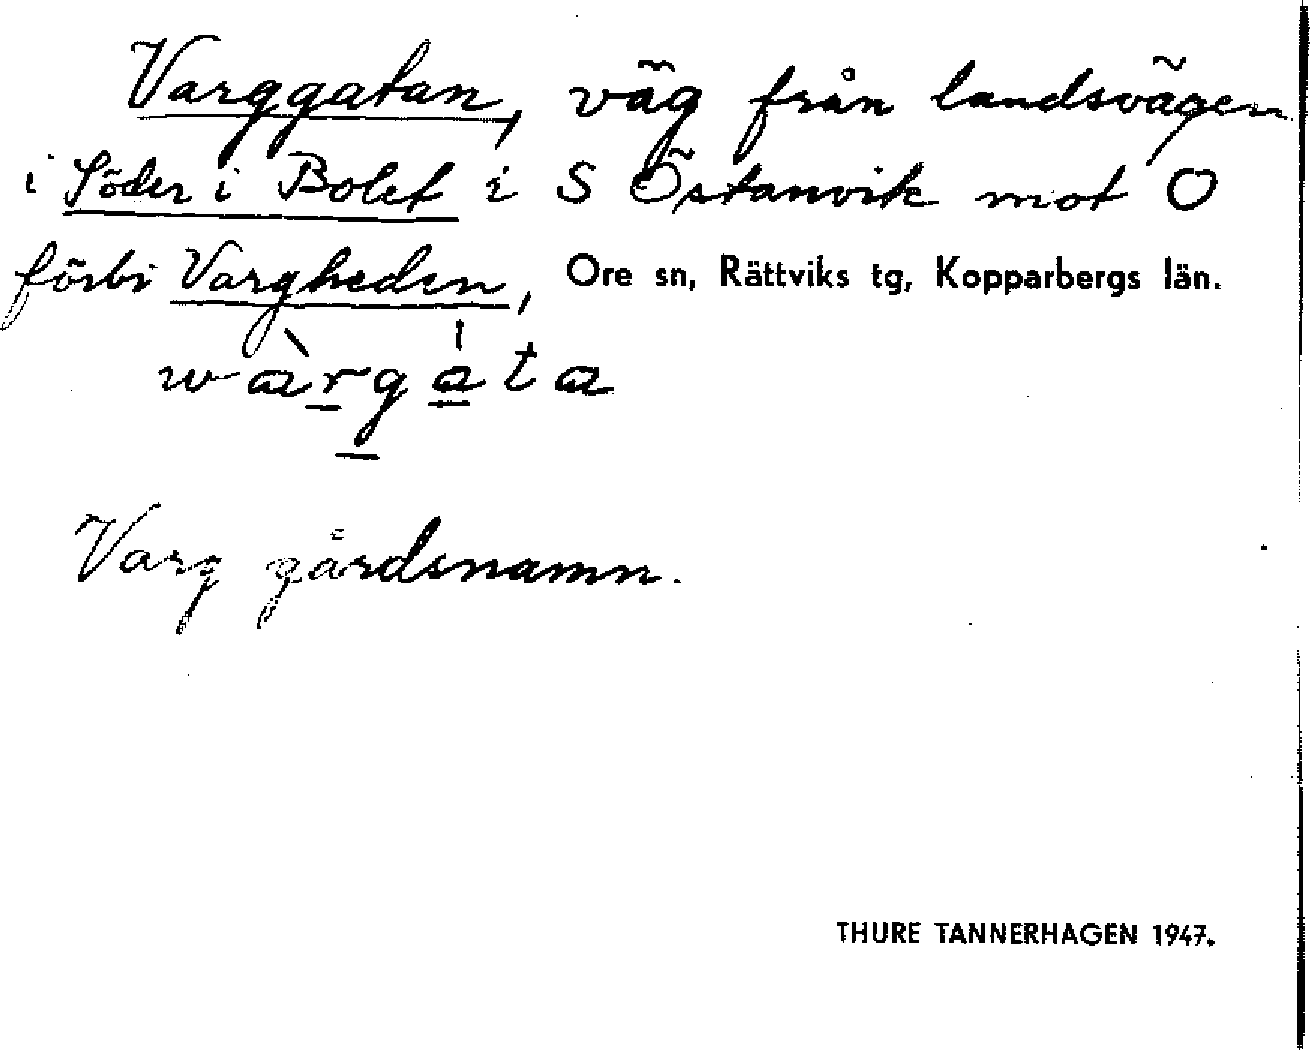 Varggatan, väg från landsvägen
i Söder i Bolet i S Östanvik mot O
förbi Vargheden, Ore sn, Rättviks tg, Kopparbergs län.
wàrgáta
Varg gårdsnamn.
THURE TANNERHAGEN 1947.